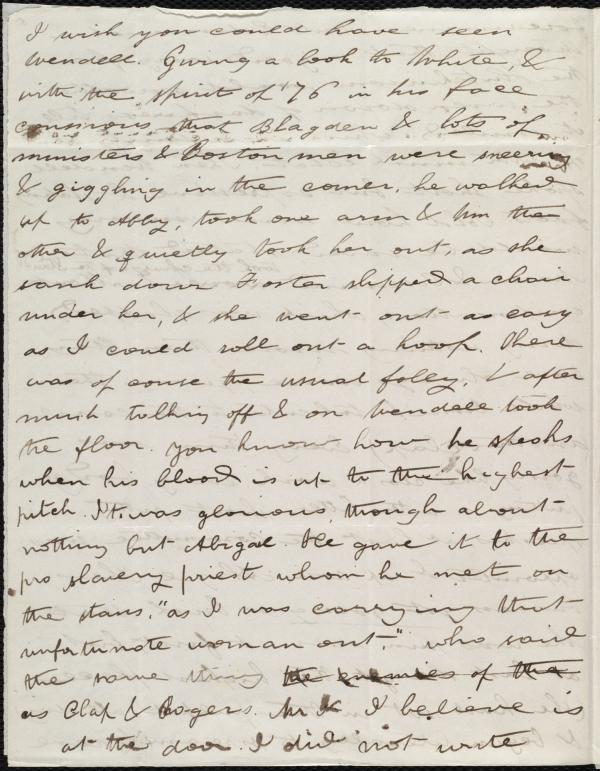 I wish you could have seen
Wendell. Giving a look to White, &
with the spirit of '76 in his face
conscious that Blagden & lots of
ministers & Boston men were sneering
& giggling in the corner, he walked
up to Abby, took one arm & him the
other & quietly took her out, as she
sank down Foster slipped a chair
under her, & she went out as easy
as I could roll out a hoop. There
was of course the usual folly, & after
much talking off & on Wendell took
the floor. You know how he speaks
when his blood is up to the highest
pitch. It was glorious, though about
nothing but Abigal. He gave it to the
pro slavery priest whom he met on
the stairs, "as I was carrying that
unfortunate woman out," who said
the same thing the enemies of the
as Clap & Rogers. Mr K I believe is
at the door. I did not write